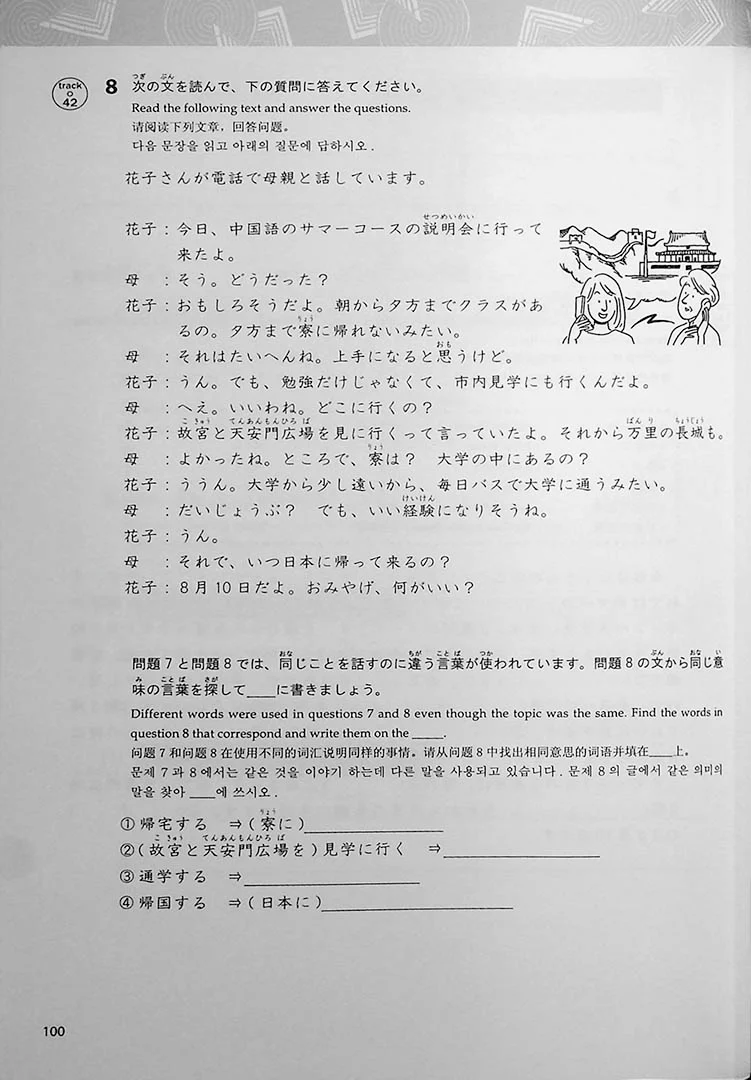 track
42
8 次の文を読んで、下の質問に答えてください。
Read the following text and answer the questions.
请阅读下列文章，回答问题。
다음 문장을 읽고 아래의 질문에 답하시오.
花子さんが電話で母親と話しています。
花子：今日、中国語のサマーコースの説明会に行って
来たよ。
母　：そう。どうだった？
花子：おもしろそうだよ。朝から夕方までクラスがあ
るの。夕方まで寮に帰れないみたい。
母　：それはたいへんね。上手になると思うけど。
花子：うん。でも、勉強だけじゃなくて、市内見学にも行くんだよ。
母　：へえ。いいわね。どこに行くの？
花子：故宮と天安門広場を見に行くって言っていたよ。それから万里の長城も。
母　：よかったね。ところで、寮は？　大学の中にあるの？
花子：ううん。大学から少し遠いから、毎日バスで大学に通うみたい。
母　：だいじょうぶ？　でも、いい経験になりそうね。
花子：うん。
母　：それで、いつ日本に帰って来るの？
花子：８月10日だよ。おみやげ、何がいい？
問題７と問題８では、同じことを話すのに違う言葉が使われています。問題８の文から同じ意
味の言葉を探して____に書きましょう。
Different words were used in questions 7 and 8 even though the topic was the same. Find the words in
question 8 that correspond and write them on the _____.
问题7和问题8在使用不同的词汇说明同样的事情。请从问题8中找出相同意思的词语并填在____上。
문제 7과 8에서는 같은 것을 이야기 하는데 다른 말을 사용되고 있습니다. 문제 8의 글에서 같은 의미의
말을 찾아 ____에 쓰시오.
①帰宅する　⇒（寮に）____________
②（故宮と天安門広場を）見学に行く　⇒____________
③通学する　⇒____________
④帰国する　⇒（日本に）____________
100